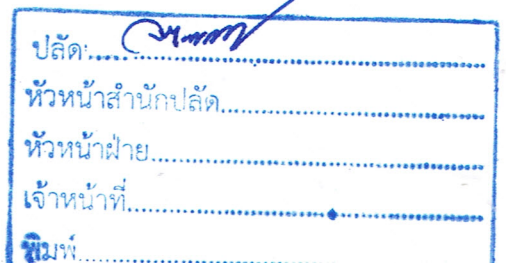 ปลัด
หัวหน้าสำนักปลัด
หัวหน้าฝ่าย
เจ้าหน้าที่
พิมพ์